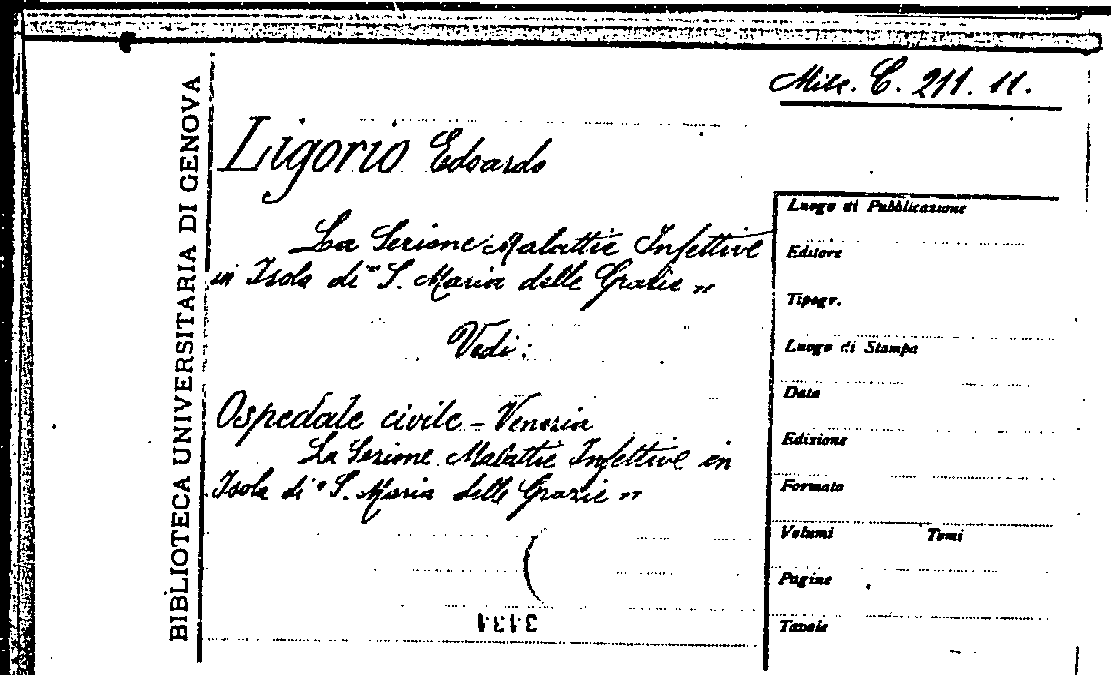 Misc. C. 211. 11.
BIBLIOTECA UNIVERSITARIA DI GENOVA
Ligorio Edoardo
La Sezione Malattie Infettive
in Isola di "S. Maria delle Grazie"
Vedi:
Ospedale civile - Venezia
La Sezione Malattie Infettive in
Isola di "S. Maria delle Grazie"
3131
Luogo di Pubblicazione
Editore
Tipogr.
Luogo di Stampa
Data
Edizione
Formato
Volumi Tomi
Pagine
Tavole